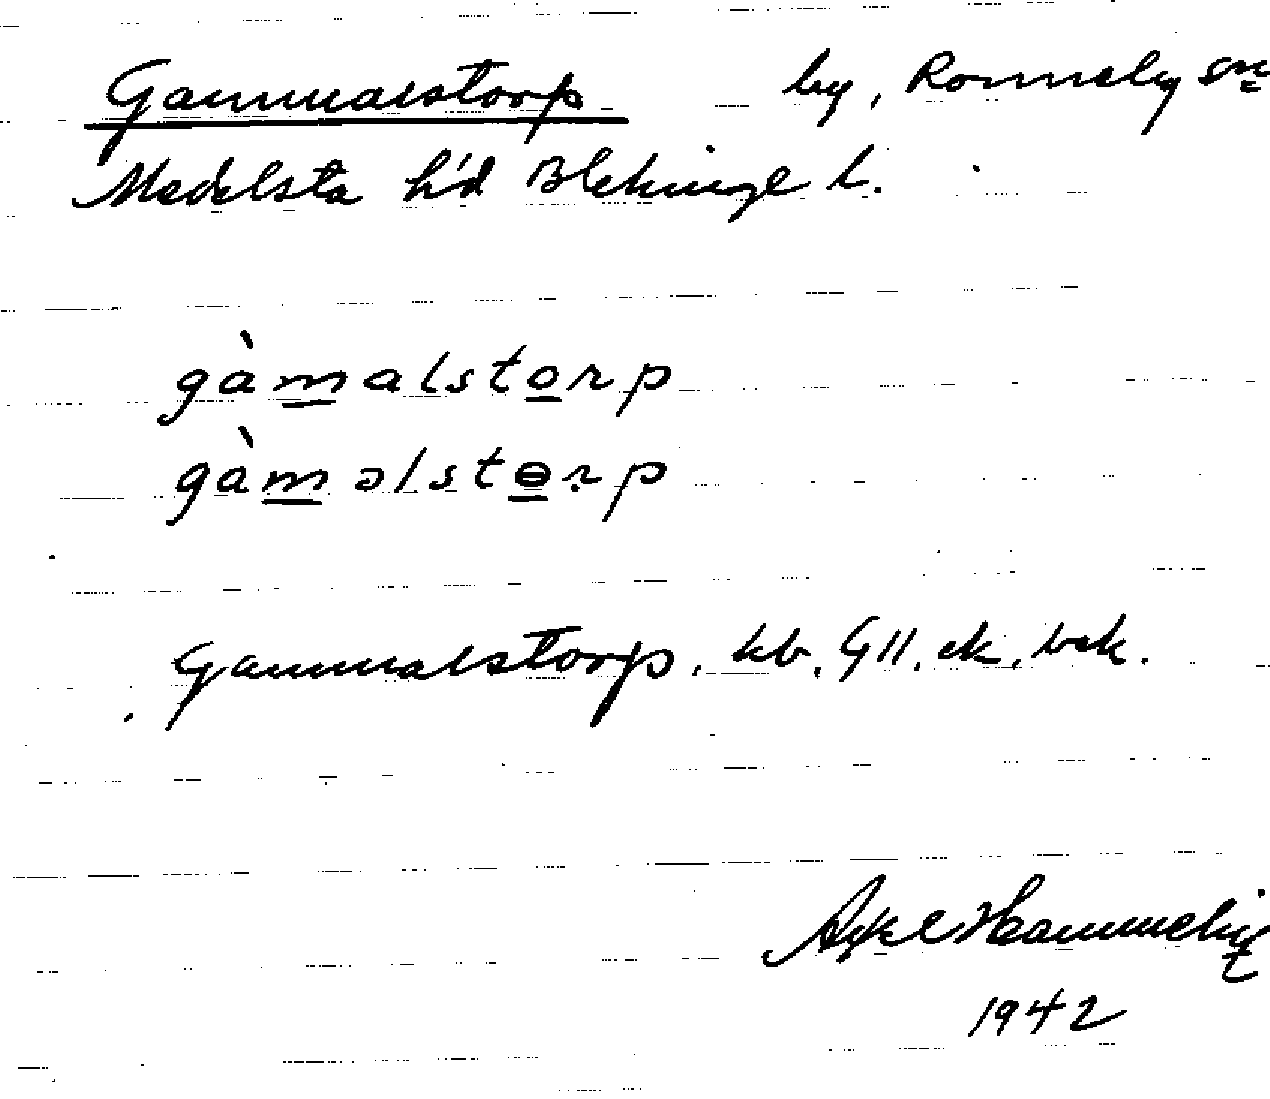 Gammalstorp by, Ronneby sn
Medelsta h'd Blekinge l.
gàmalstorp
gàməlstɵrp
Gammalstorp. kb, GII. ek. bsk.
1942